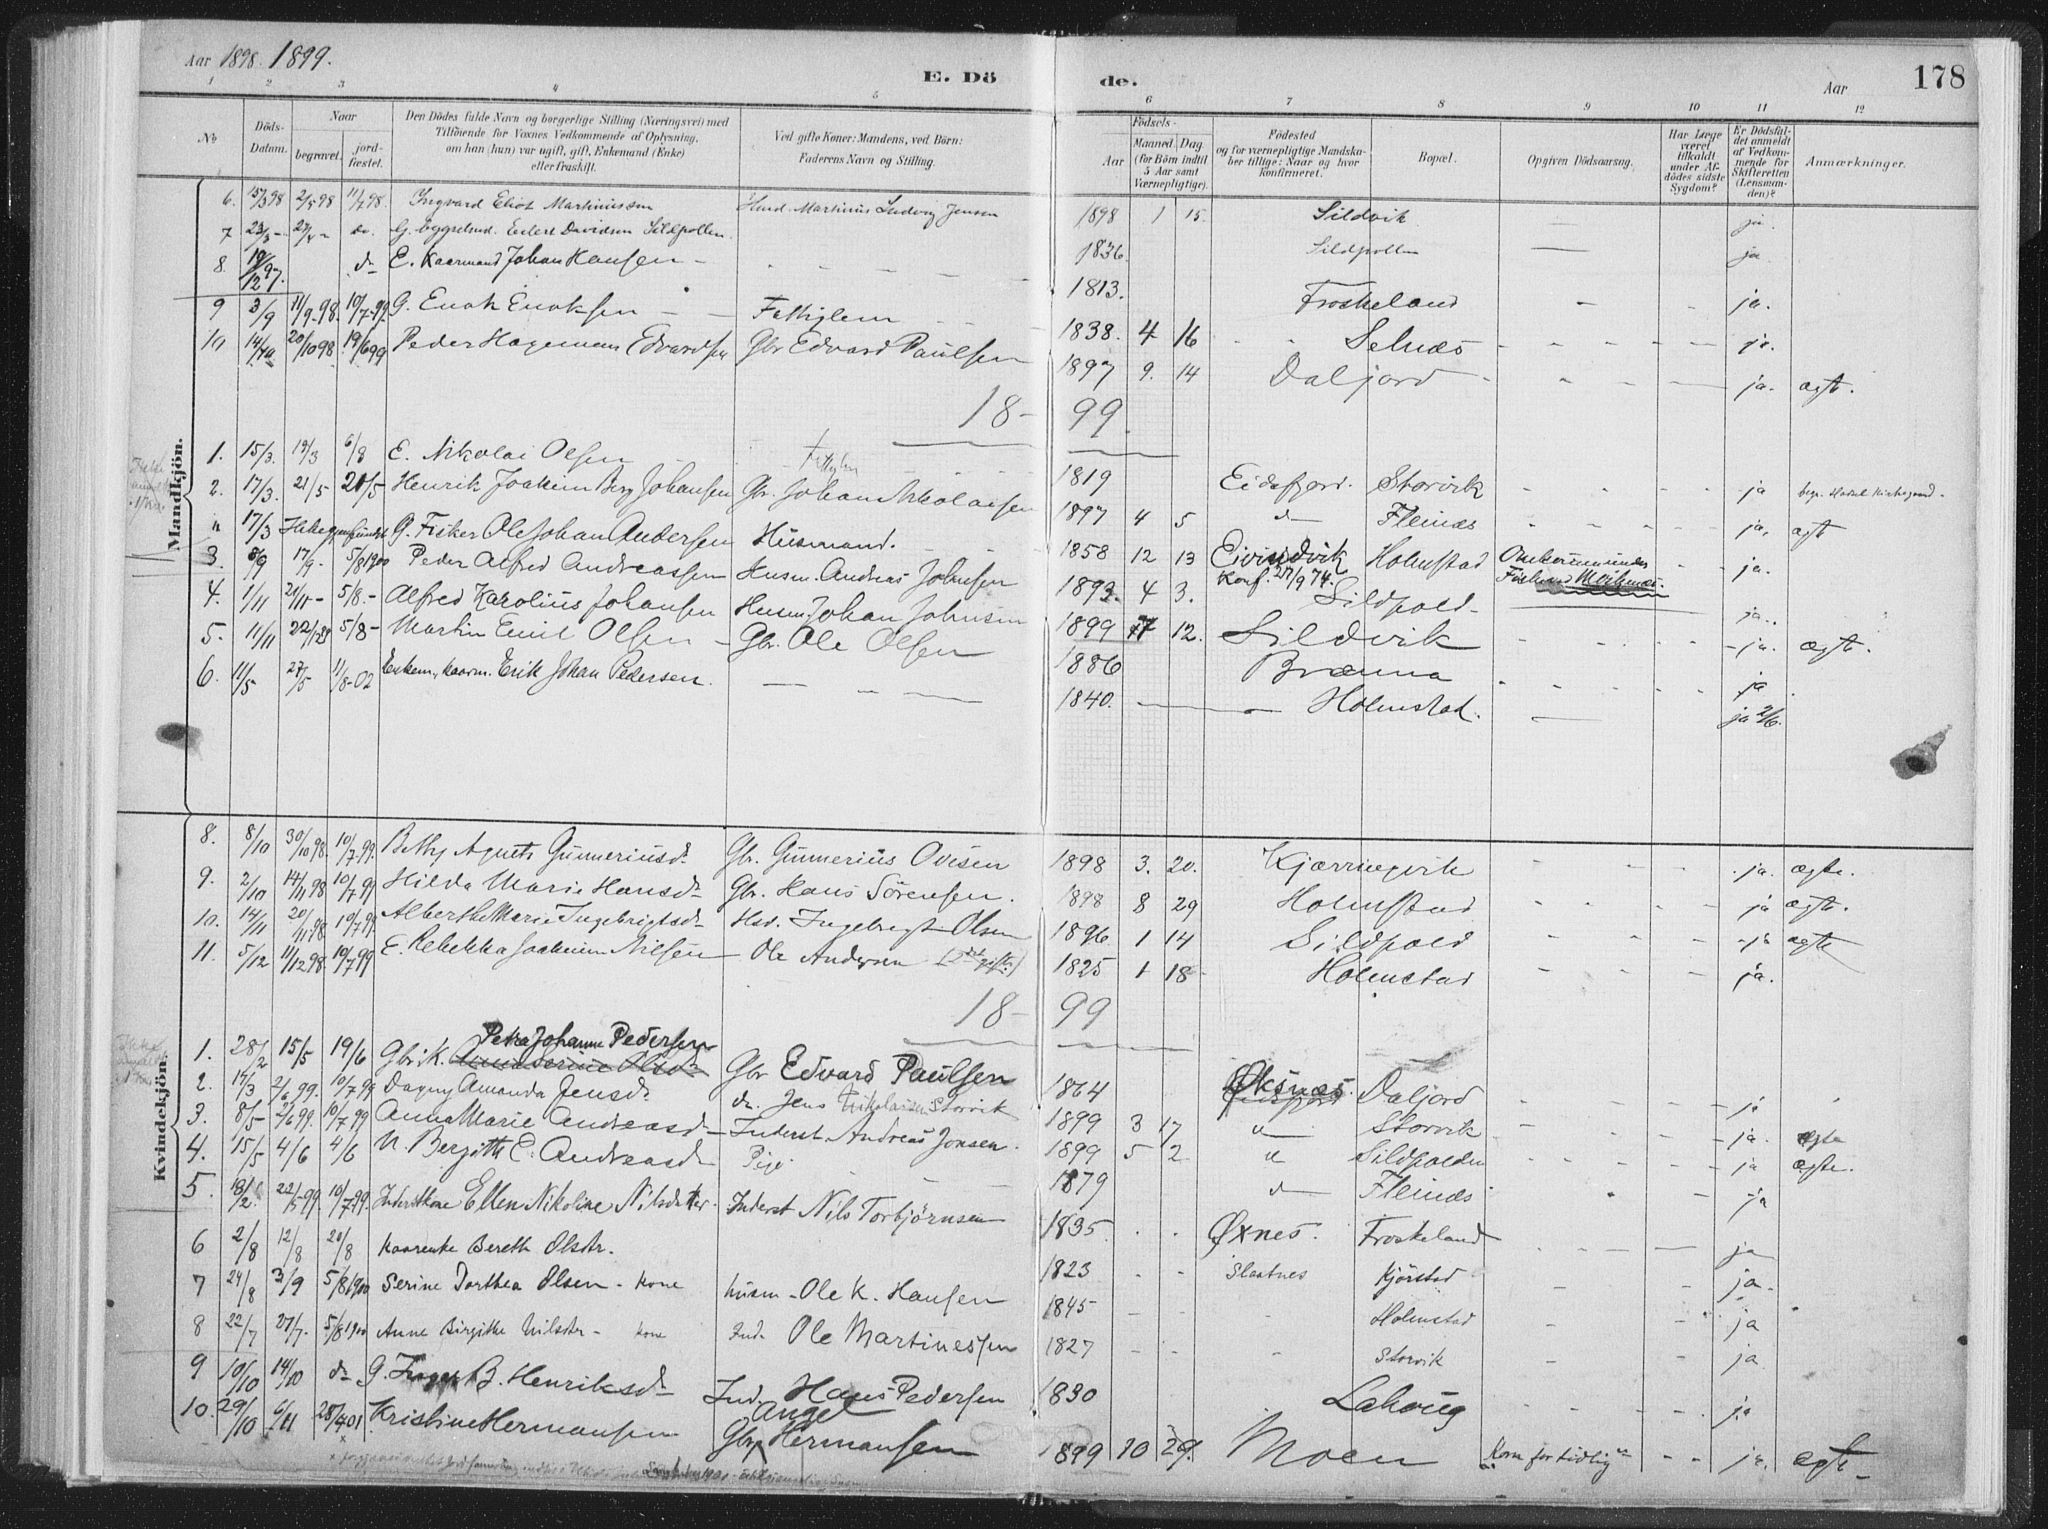 Aar 1898. 1899.
E. Dö de.
Aar
178
1 2 3 4 5 6 7 8 9 10 11 12
No
Döds-Datum.
Naar
begravet.
jord-fæstet.
Den Dödes fulde Navn og borgerlige Stilling (Næringsvei) med Tilföiende for Voxnes Vedkommende af Oplysning, om han (hun) var ugift, gift, Enkemand (Enke) eller fraskilt.
Ved gifte Koner: Mandens, ved Börn: Faderens Navn og Stilling.
Födsels-
Aar
Maaned. Dag.
(for Börn indtil 5 Aar samt Værnepligtige).
Födested og for værnepligtige Mandskaber tillige: Naar og hvor konfirmeret.
Bopæl.
Opgiven Dödsaarsag.
Har Læge været tilkaldt under Afdödes sidste Sygdom?
Er Dödsfaldet anmeldt af Vedkommende for Skifteretten (Lensmanden)?
Anmærkninger.
Mandkjön.
6. 15/3 98 2/5 98 11/7 98. Ingvard Eliot Martinussen Husmd. Martinus Ludvig Jensen 1898 1 15. Sildvik — ja.
7 23/3 - 27/4 - do. G. bygselmd. Eilert Davidsen Sildpollen. 1836. Sildpollen — ja
8. 19/12 97. do E. Kaarmand Johan Hansen — 1813. Froskeland - ja.
9 3/9 11/9-98. 10/7-99. G. Enok Enoksen - - Fattiglem 1838. 4 16 Selnæs ja.
10 14/10 20/10 98 19/6 99 Peder Hagemann Edvardsen Gbr Edvard Paulsen 1897 9. 14 Daljord - ja. ægte.
18- 99.
1. 15/3. 19/3 6/8 E. Nikolai Olsen Fattiglem 1819 Eidsfjord. Storvik ja begr. Hadsel Kirkegaard.
2. 17/3. 21/5 21/5 Henrik Joakim Berg Johansen Gbr. Johan Nikolaisen 1897 4 5 do Fleinæs ja, ægt
" 17/3 Ikke gjenfundet G. Fisker Ole Johan Andersen Husmand. 1858 12 13 Eivindvik Holmstad Omkommen under ja.
Konf. 27/9 74. Fiskeri
3. 8/9 17/9- 5/8 1900 Peder Alfred Andreassen Husm. Andreas Johnsen 1893. 4 3. Sildpold. ja.
4. 1/11 21/11- 5/8.- Alfred Karolius Johansen Husm. Johan Johnsen 1899 7 12. Sildvik - ja. ægte.
5. 11/11 5/8- Martin Emil Olsen - Gbr. Ole Olsen 1886 Brænna ja.
6. 11/5 27/5 11/8-02 Enkem., Kaarm. Erik Johan Pedersen. 1840. Holmstad. ja 2/6.
Kvindekjön.
8. 8/10 30/10 98. 10/7-99. Bethy Agnets Gunneriusd. Gbr. Gunnerius Ovesen 1898 3. 20. Kjærringvik ja. ægte.
9. 2/10 14/11 98 10/7 99 Hilda Marie Hansd. Gbr. Hans Sörensen. 1898 8 29 Holmstad ja ægte.
10. 14/11 20/11 98 10/7 99. Alberthe Marie Ingebrigtsd. Hsd. Ingebrigt Olsen 1896. 1 14 Sildpold ja ægte
11. 5/12 11/12 98. 10/7 99 E. Rebekka Joakimine Nilsen Ole Andersen 1825 1 18 Holmstad ja.
18- 99
1. 28/2 15/5 19/6 Petra Johanne Pedersen
Gbr. K. Gbr Edvard Paulsen 1864 Øksnæs. Daljord ja
2. 17/3 2/6 99. 10/7 99 Dagny Amanda Jensd. do. Jens Nikolaisen Storvik 1899 3 17 " Storvik ja. ægte
3. 8/5- 2/6 99. 10/7 99 Anna Marie Andreasd. Inderst Andreas Jonsen. 1899 5 2. " Sildpolden ja ægte.
4. 15/5 4/6 4/6 U. Bergitte E. Andreasd. Pige 1879 do Fleinæs ja
5. 22/5 99. 10/7 99. Inderstkone Ellen Nikoline Nilsdatter. Inderst Nils Torbjörnsen 1835. Øxnes. Froskeland ja
6 2/8 12/8 20/8 Kaarenke Bereth Olsdtr. 1823 Slaatnes Kjörstad ja.
7 24/8 3/9 5/8 1900 Serine Dorthea Olsen - kone husm - Ole K. Hansen 1845 Holmstad ja
8 22/7 27/7. 5/8 1900 Anne Birgitte Nilsdtr - kone Ind. Ole Martinessen 1827 Storvik ja.
9 10/10 14/10 do G. Inger B. Henriksd. Ind. Hans Pedersen 1830 Lahaug ja
10. 29/10 6/11 28/4 01 Kristine Hermansen Gbr. Angel Hermansen 1899 10 29. Moen Kom for tidlig ja. ægte